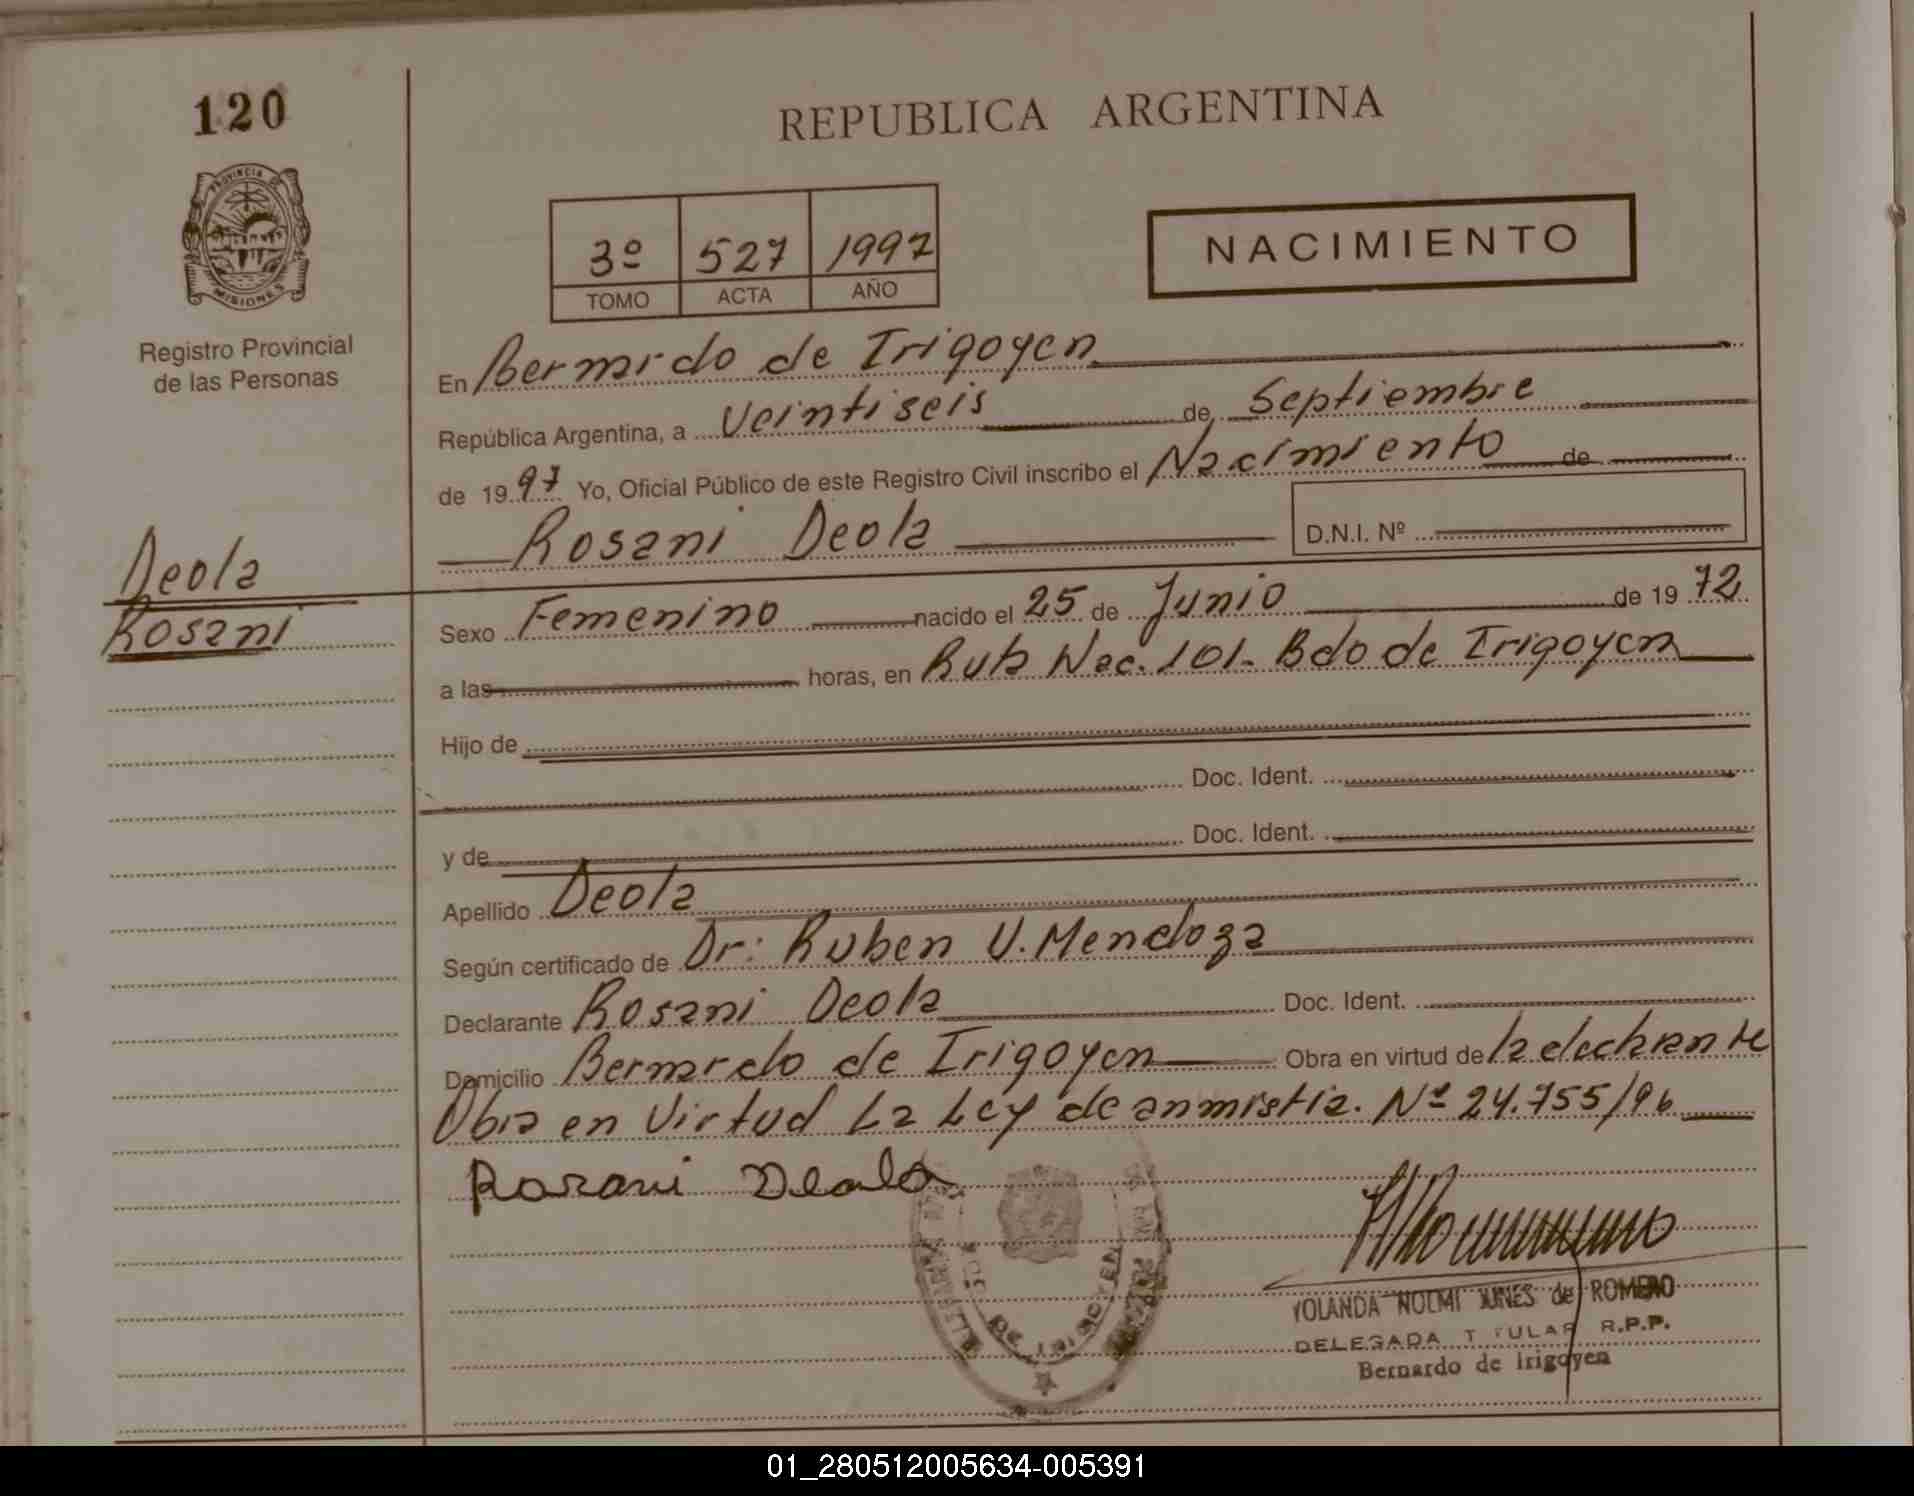 120
REPUBLICA ARGENTINA
PROVINCIA
MISIONES
Registro Provincial
de las Personas
3º 527 1997
TOMO ACTA AÑO
NACIMIENTO
En Bernardo de Irigoyen
República Argentina, a Veintiseis de Septiembre
de 1997 Yo, Oficial Público de este Registro Civil inscribo el Nacimiento de
Rosani Deola D.N.I. Nº
Deola
Rosani
Sexo Femenino nacido el 25 de Junio de 1972
a las horas, en Ruta Nac. 101. Bdo de Irigoyen
Hijo de
Doc. Ident.
y de Doc. Ident.
Apellido Deola
Según certificado de Dr: Ruben U. Mendoza
Declarante Rosani Deola Doc. Ident.
Domicilio Bernardo de Irigoyen Obra en virtud de la declarante
Obra en Virtud La Ley de anmistia. Nº 24.755/96
Rosani Deola
DE IRIGOYEN
YOLANDA NOEMI de ROMERO
DELEGADA TITULAR R.P.P.
Bernardo de Irigoyen
01_280512005634-005391